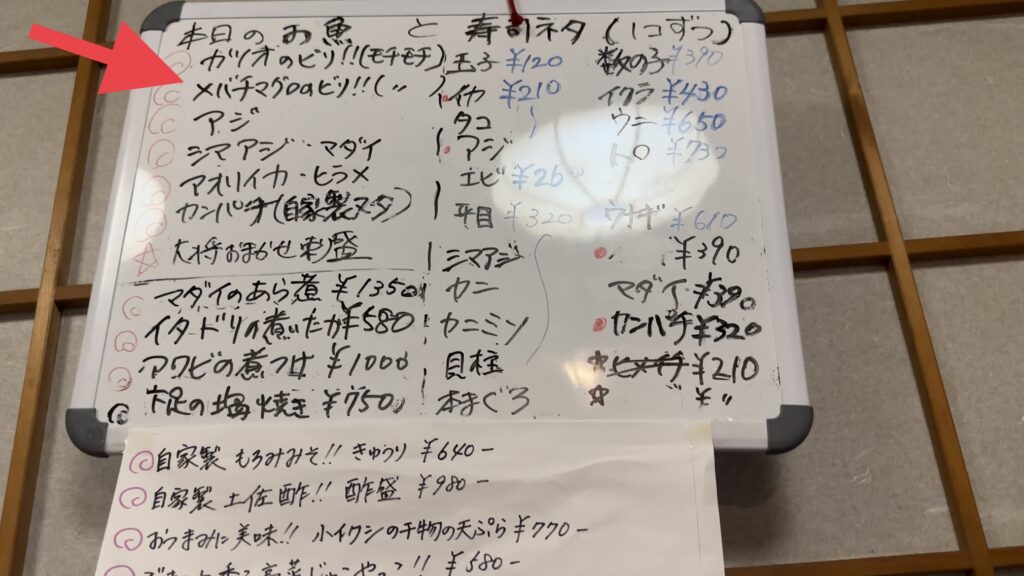 本日のお魚 と 寿司ネタ(1コずつ)
カツオのビリ!!(モチモチ)
メバチマグロのビリ!!(〃
アジ
シマアジ・マダイ
アオリイカ・ヒラメ
カンパチ(自家製
大将おまかせ
マダイのあら煮 ¥1350
イタドリの煮いたか ¥580
アワビの煮つけ ¥1000
下足の塩焼き ¥750
玉子 ¥120
イカ ¥210
タコ
アジ
エビ ¥260
平目 ¥320
シマアジ
カニ
カニミソ
貝柱
本まぐろ
数の子 ¥390
イクラ ¥430
ウニ ¥650
トロ ¥730
ウナギ ¥610
¥390
マダイ ¥390
カンパチ ¥320
¥210
自家製 もろみみそ!! きゅうり ¥640-
自家製 土佐酢!! 酢盛 ¥980-
おつまみに美味!! 小イワシの干物の天ぷら ¥770-
¥580-